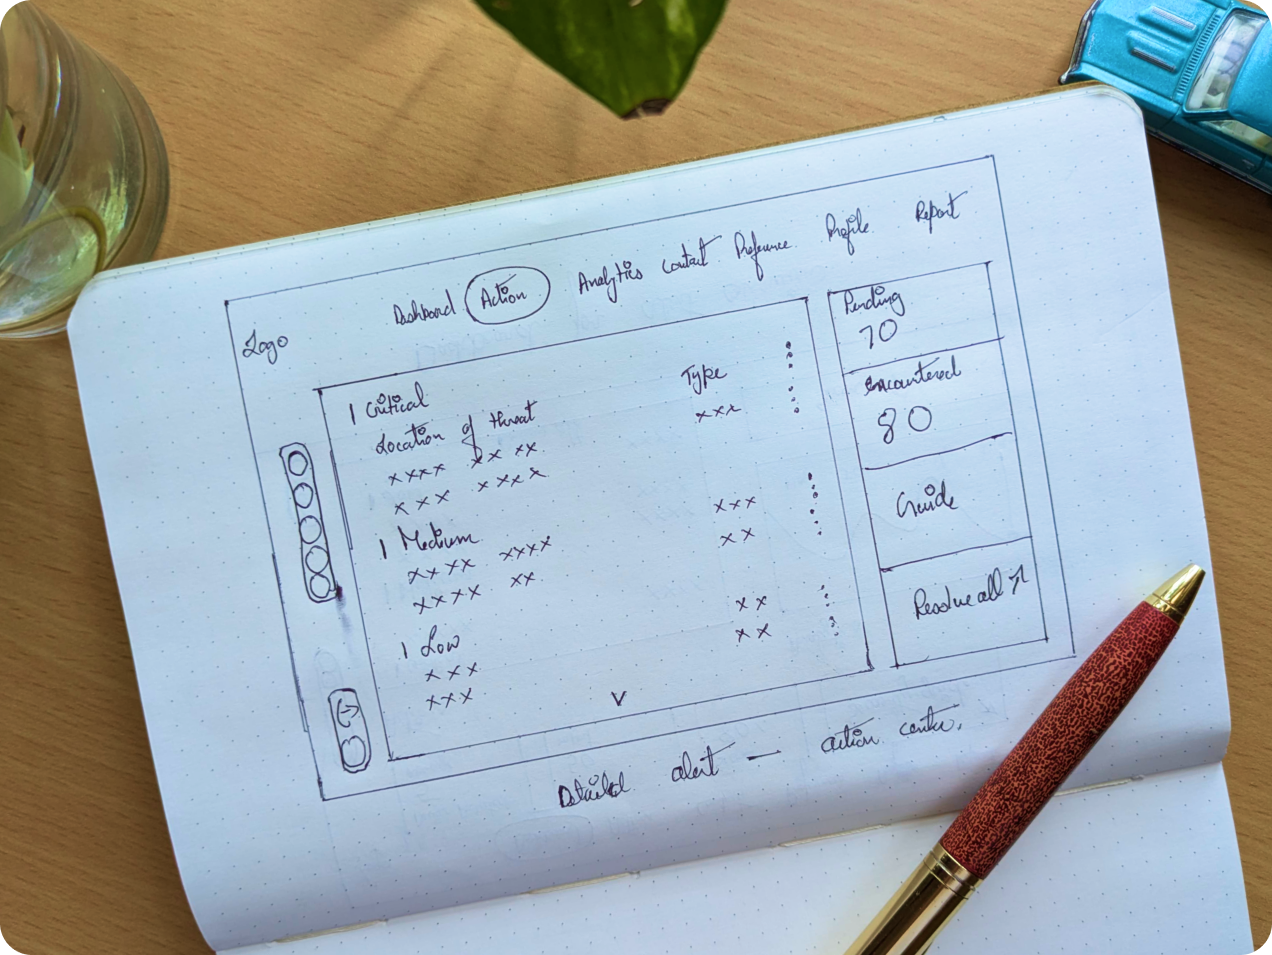 Logo
Dashboard Action Analytics contact Preference Profile Report
1 Critical
Location of threat
Type
xxxx xx xx
xxx
xxx xxxx
1 Medium
xxx
xxxx xxxx
xx
xxxx xx
1 Low
xx
xxx
xx
xxx
v
Pending
70
encountered
80
Guide
Resolve all ↗
Detailed alert — action center.